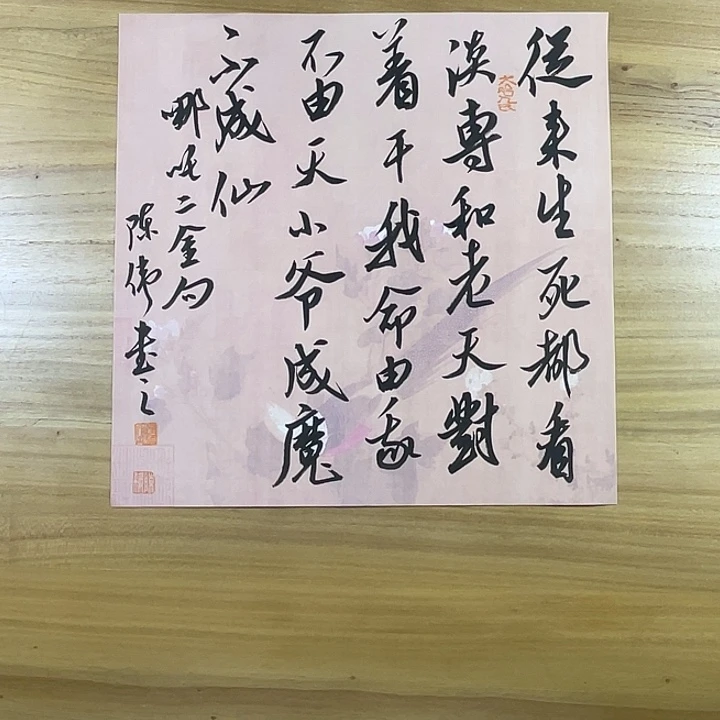 從来生死都看
淡專和老天對
着干我命由我
不由天小爷成魔
不成仙
哪吒二金句
陈伟書之